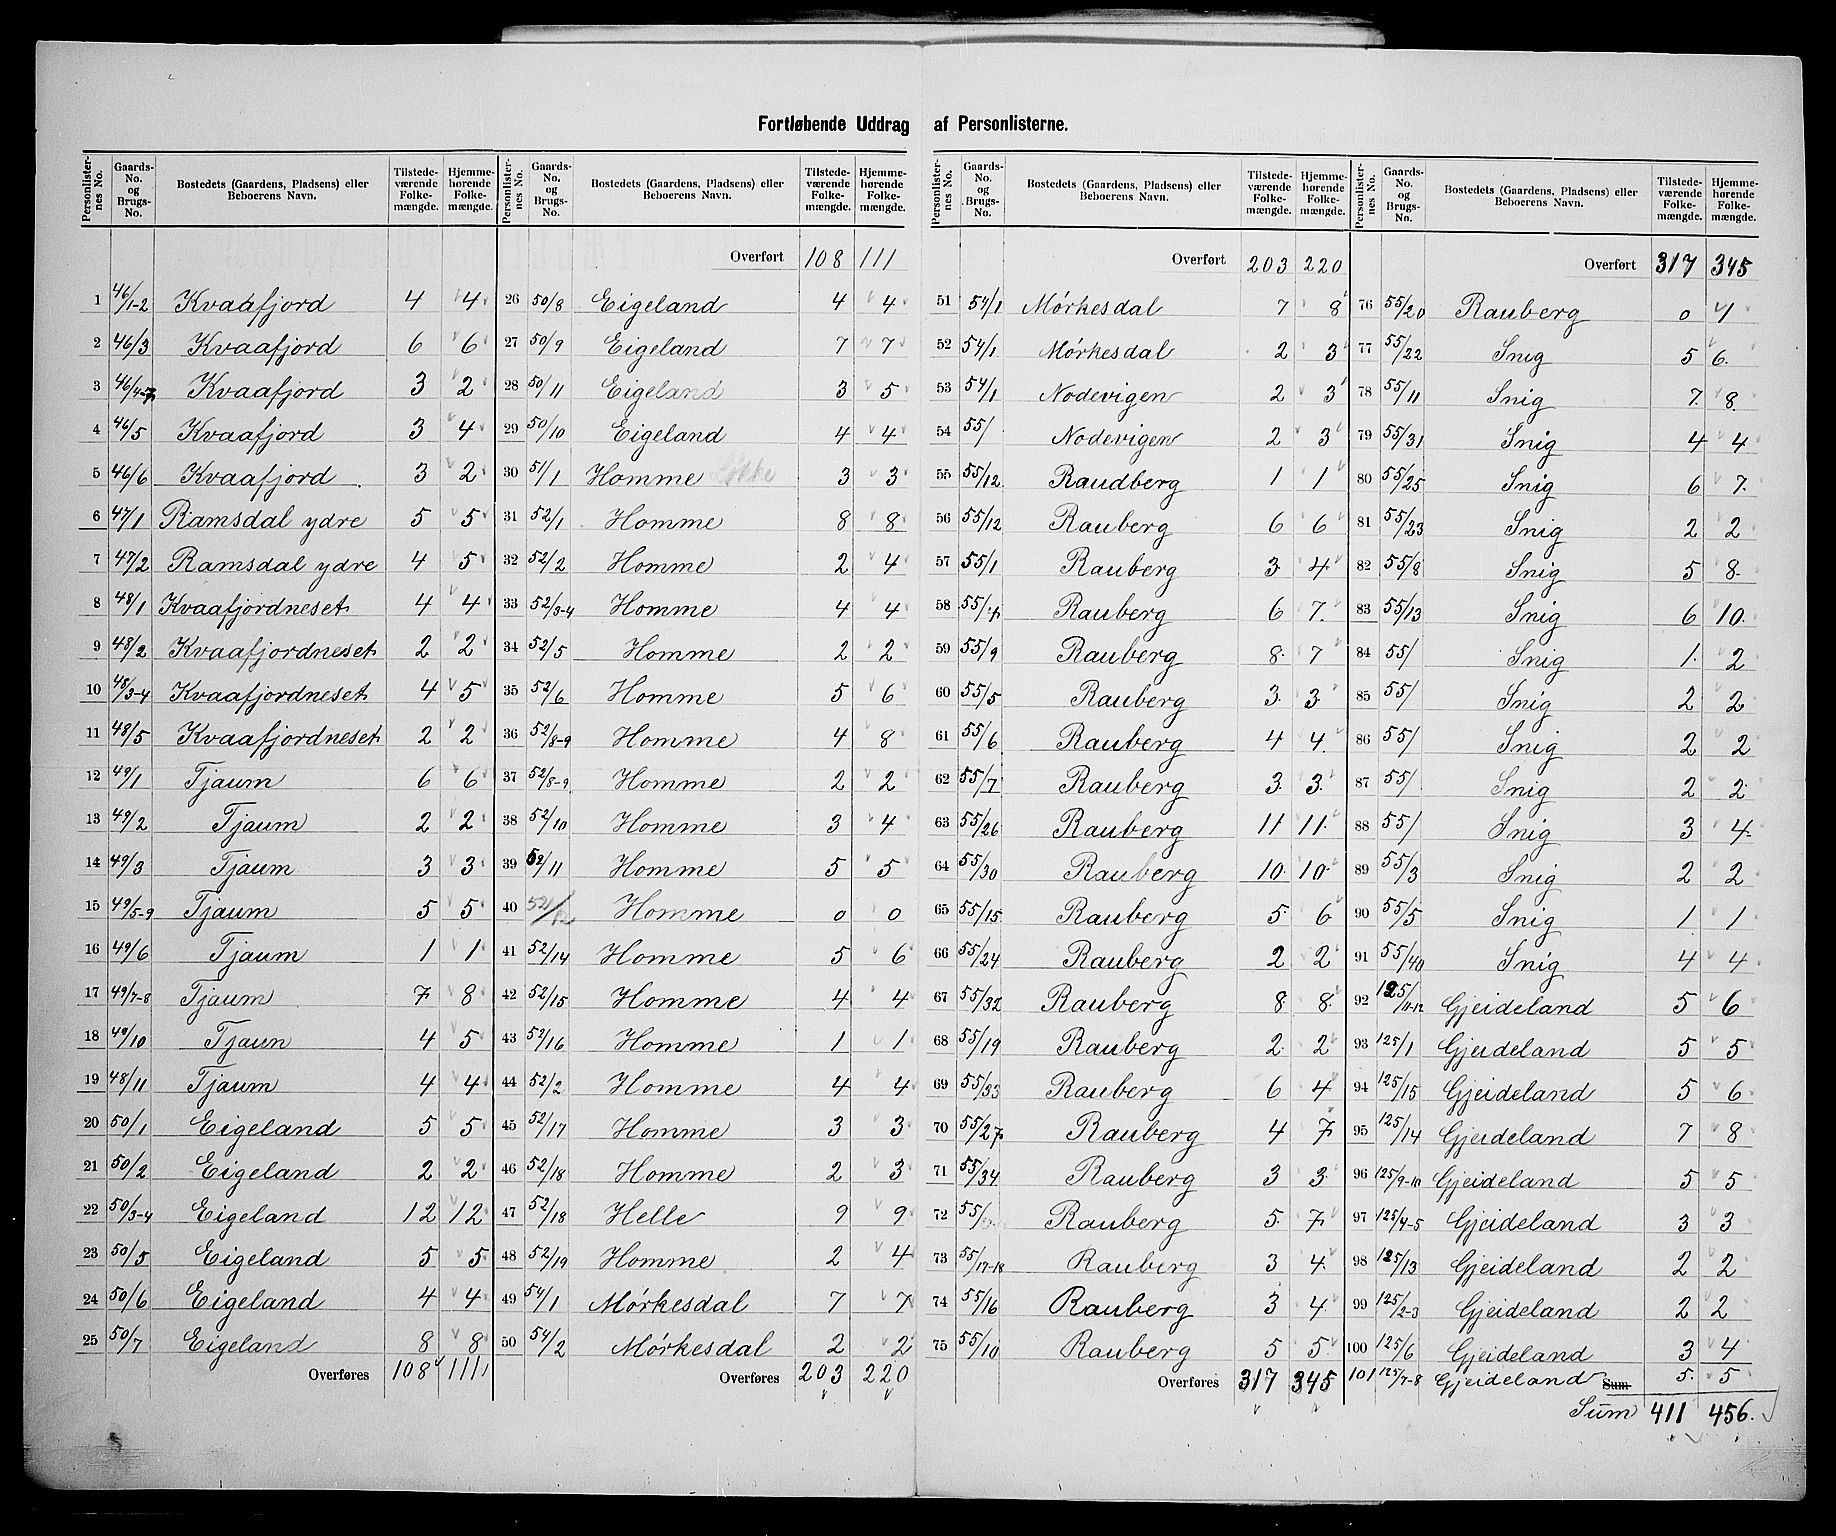 Fortløbende Uddrag af Personlisterne.
Personlisternes No. Gaards-No. og Brugs-No. Bostedets (Gaardens, Pladsens) eller Beboerens Navn. Tilstedeværende Folkemængde. Hjemmehørende Folkemængde.
1 46/1-2 Kvaafjord 4 4
2 46/3 Kvaafjord 6 6
3 46/4-7 Kvaafjord 3 2
4 46/5 Kvaafjord 3 4
5 46/6 Kvaafjord 3 2
6 47/1 Ramsdal ydre 5 5
7 47/2 Ramsdal ydre 4 5
8 48/1 Kvaafjordneset 4 4
9 48/2 Kvaafjordneset 2 2
10 48/3-4 Kvaafjordneset 4 5
11 48/5 Kvaafjordneset 2 2
12 49/1 Tjaum 6 6
13 49/2 Tjaum 2 2
14 49/3 Tjaum 3 3
15 49/5-9 Tjaum 5 5
16 49/6 Tjaum 1 1
17 49/7-8 Tjaum 7 8
18 49/10 Tjaum 4 5
19 48/11 Tjaum 4 4
20 50/1 Eigeland 5 5
21 50/2 Eigeland 2 2
22 50/3-4 Eigeland 12 12
23 50/5 Eigeland 5 5
24 50/6 Eigeland 4 4
25 50/7 Eigeland 8 8
Overføres 108 111
Personlisternes No. Gaards-No. og Brugs-No. Bostedets (Gaardens, Pladsens) eller Beboerens Navn. Tilstedeværende Folkemængde. Hjemmehørende Folkemængde.
Overført 108 111
26 50/8 Eigeland 4 4
27 50/9 Eigeland 7 7
28 50/11 Eigeland 3 5
29 50/10 Eigeland 4 4
30 51/1 Homme 3 3
31 52/1 Homme 8 8
32 52/2 Homme 2 4
33 52/3-4 Homme 4 4
34 52/5 Homme 2 2
35 52/6 Homme 5 6
36 52/8-9 Homme 4 8
37 52/8-9 Homme 2 2
38 52/10 Homme 3 4
39 52/11 Homme 5 5
40 52/12 Homme 0 0
41 52/14 Homme 5 6
42 52/15 Homme 4 4
43 52/16 Homme 1 1
44 52/2 Homme 4 4
45 52/17 Homme 3 3
46 52/18 Homme 2 3
47 52/18 Helle 9 9
48 52/19 Homme 2 4
49 54/1 Mørkesdal 7 7
50 54/2 Mørkesdal 2 2
Overføres 203 220
Personlisternes No. Gaards-No. og Brugs-No. Bostedets (Gaardens, Pladsens) eller Beboerens Navn. Tilstedeværende Folkemængde. Hjemmehørende Folkemængde.
Overført 203 220
51 54/1 Mørkesdal 7 8
52 54/1 Mørkesdal 2 3
53 54/1 Nodevigen 2 3
54 55/ Nodevigen 2 3
55 55/12 Raudberg 1 1
56 55/12 Rauberg 6 6
57 55/1 Rauberg 3 4
58 55/4 Rauberg 6 7
59 55/9 Rauberg 8 7
60 55/5 Rauberg 3 3
61 55/6 Rauberg 4 4
62 55/7 Rauberg 3 3
63 55/26 Rauberg 11 11
64 55/30 Rauberg 10 10
65 55/15 Rauberg 5 6
66 55/24 Rauberg 2 2
67 55/32 Rauberg 8 8
68 55/19 Rauberg 2 2
69 55/33 Rauberg 6 4
70 55/27 Rauberg 4 7
71 55/34 Rauberg 3 3
72 55/ Rauberg 5 7
73 55/17-18 Rauberg 3 4
74 55/16 Rauberg 3 4
75 55/10 Rauberg 5 5
Overføres 317 345
Personlisternes No. Gaards-No. og Brugs-No. Bostedets (Gaardens, Pladsens) eller Beboerens Navn. Tilstedeværende Folkemængde. Hjemmehørende Folkemængde.
Overført 317 345
76 55/20 Rauberg 0 4
77 55/22 Snig 5 6
78 55/11 Snig 7 8
79 55/31 Snig 4 4
80 55/25 Snig 6 7
81 55/23 Snig 2 2
82 55/8 Snig 5 8
83 55/13 Snig 6 10
84 55/ Snig 1 2
85 55/ Snig 2 2
86 55/ Snig 2 2
87 55/ Snig 2 2
88 55/ Snig 3 4
89 55/3 Snig 2 2
90 55/5 Snig 1 1
91 55/40 Snig 4 4
92 125/11-12 Gjeideland 5 6
93 125/1 Gjeideland 5 5
94 125/15 Gjeideland 5 6
95 125/14 Gjeideland 7 8
96 125/9-10 Gjeideland 5 5
97 125/4-5 Gjeideland 3 3
98 125/13 Gjeideland 2 2
99 125/2-3 Gjeideland 2 2
100 125/6 Gjeideland 3 4
101 125/7-8 Gjeideland Sum 5 5
Sum 411 456